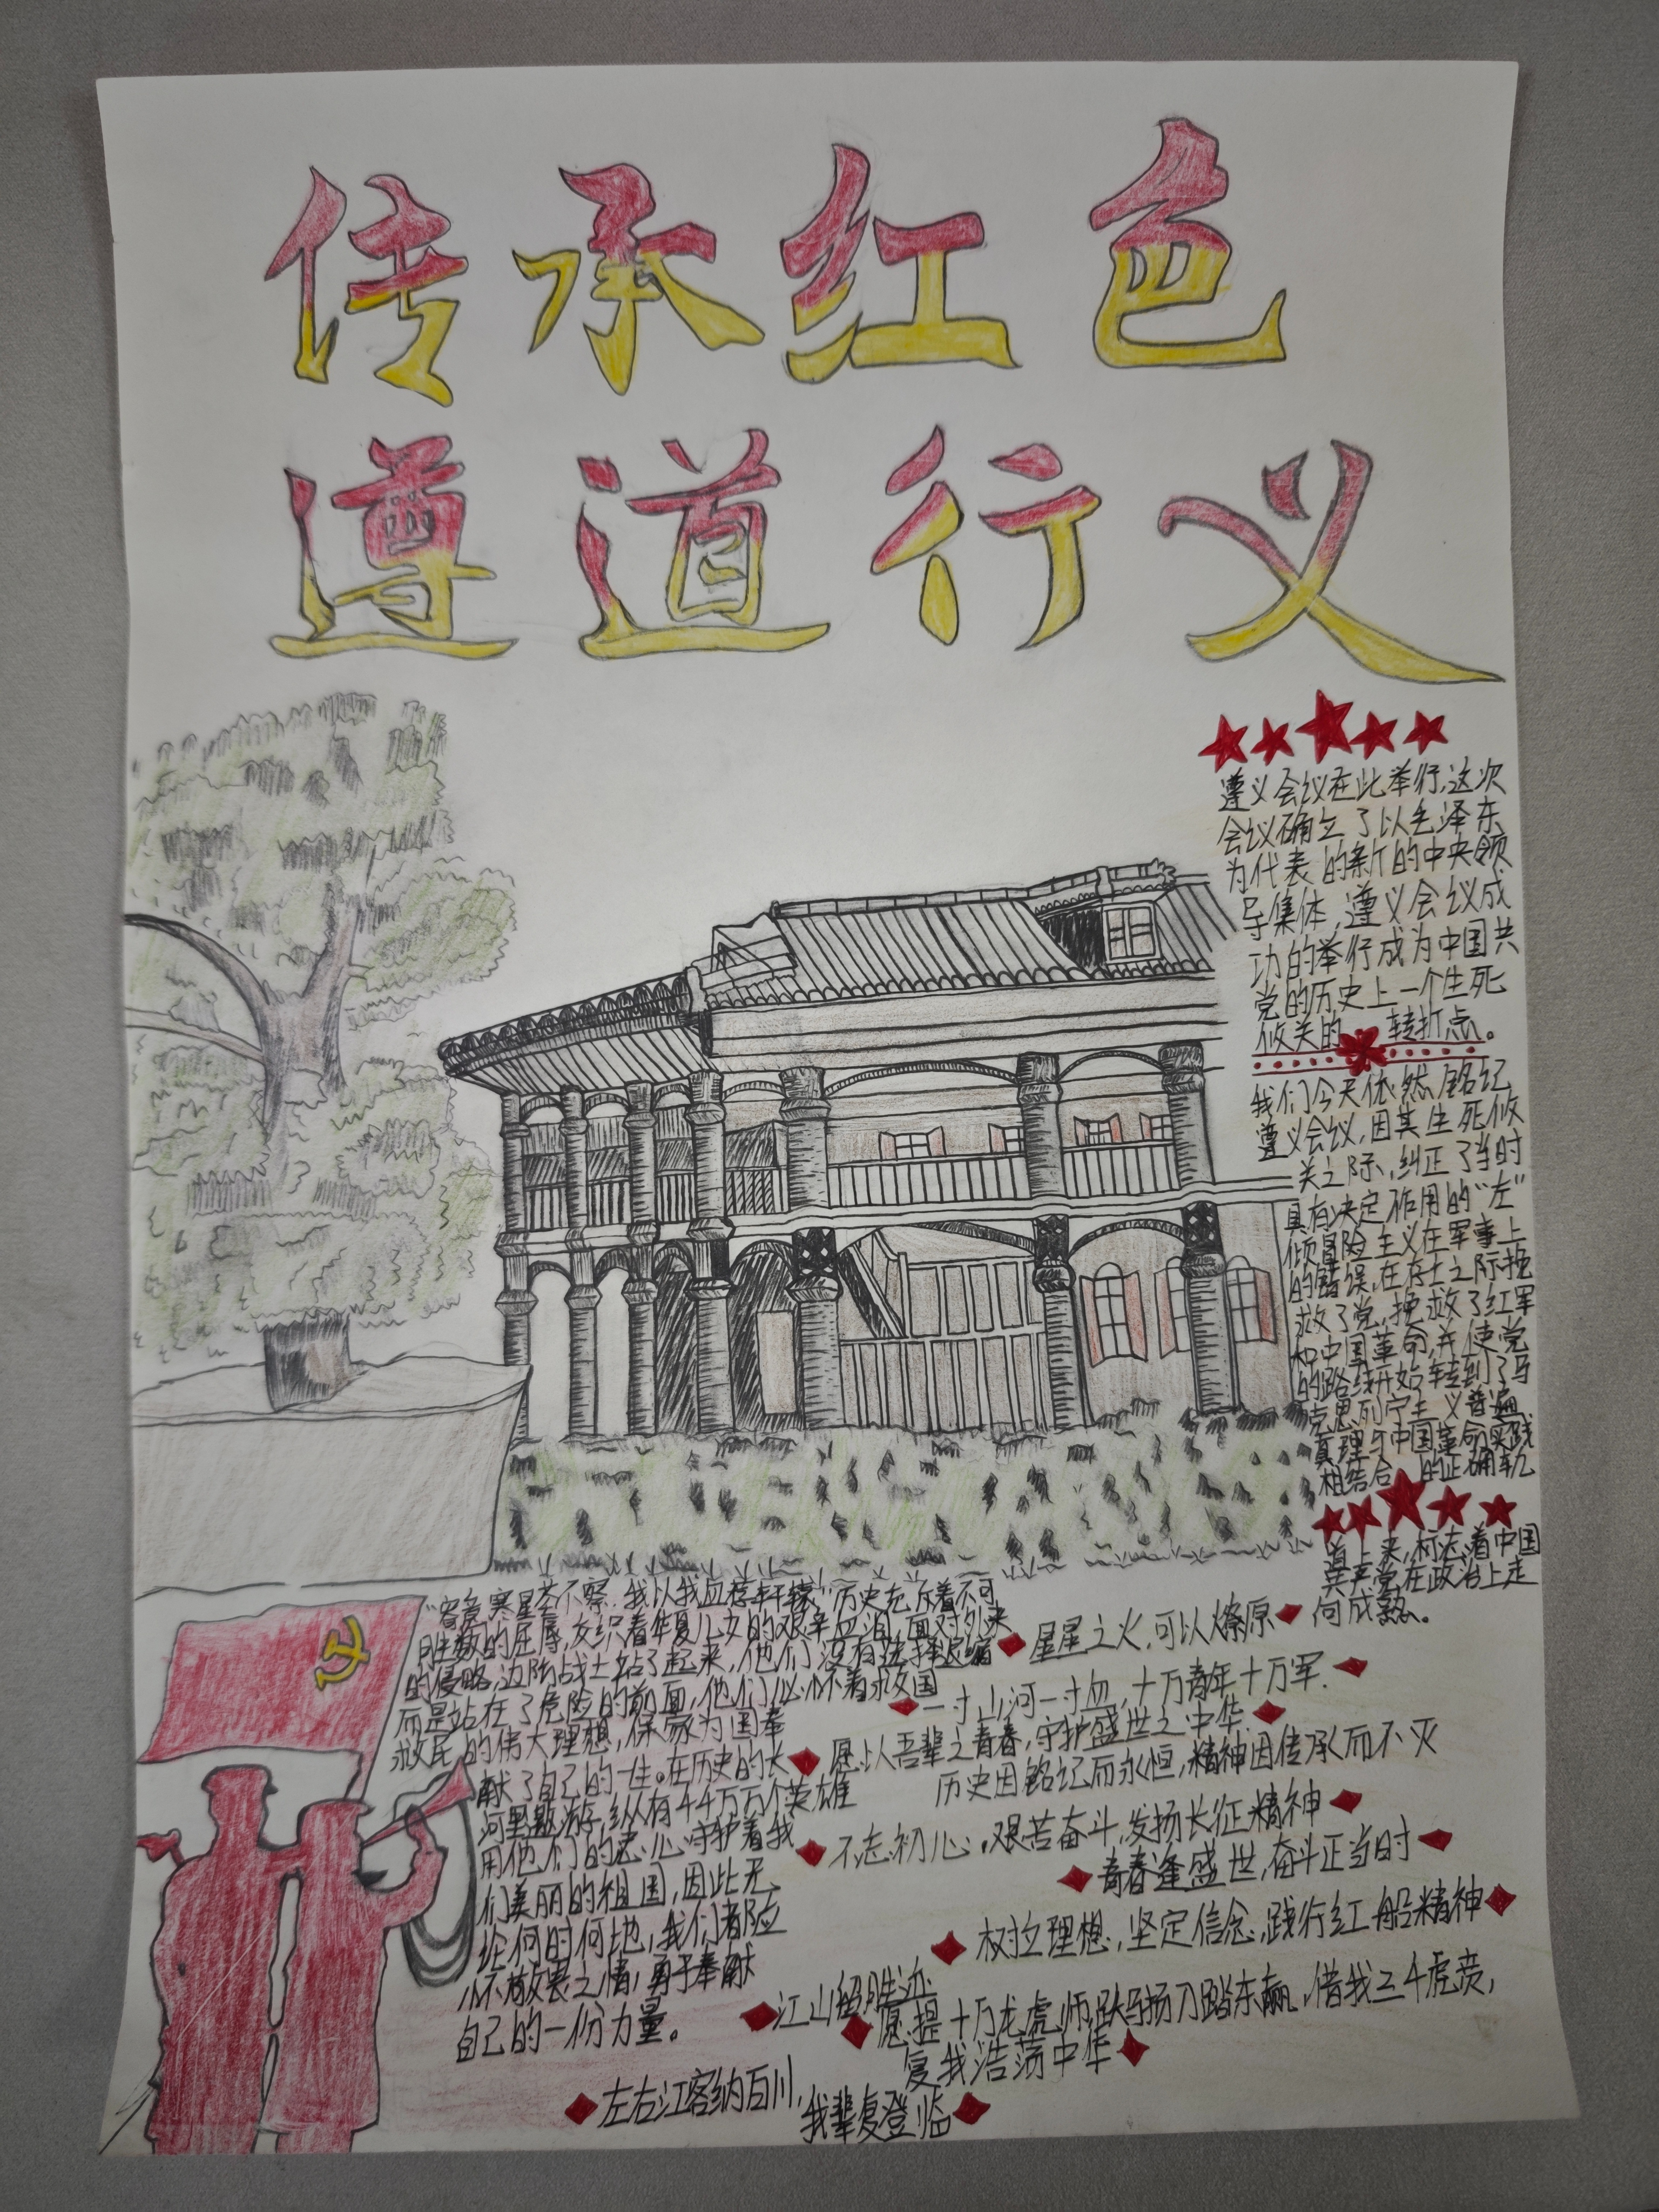 传承红色
遵道行义
遵义会议在此举行,这次
会议确立了以毛泽东
为代表的新的中央领
导集体,遵义会议成
功的举行成为中国共
党的历史上一个生死
攸关的转折点。
我们今天依然铭记
遵义会议,因其生死攸
关之际,纠正了当时
具有决定作用的“左”
倾冒险主义在军事上
的错误,在存亡之际挽
救了党,挽救了红军
和中国革命,并使党
的路线开始转到了马
克思列宁主义普遍
真理与中国革命实践
相结合的正确轨
道上来,标志着中国
共产党在政治上走
向成熟。
“寄意寒星荃不察,我以我血荐轩辕”历史充斥着不可
胜数的屈辱,交织着华夏儿女的艰辛血泪,面对外来
的侵略,边防战士站了起来,他们没有选择退缩
而是站在了危险的前面,他们心怀着救国
救民的伟大理想,保家为国奉
献了自己的一生。在历史的长
河里遨游,纵有千千万万个英雄
用他们的忠心守护着我
们美丽的祖国,因此无
论何时何地,我们都应
心怀敬畏之情,勇于奉献
自己的一份力量。
星星之火,可以燎原
一寸山河一寸血,十万青年十万军.
愿以吾辈之青春,守护盛世之中华
历史因铭记而永恒,精神因传承而不灭
不忘初心,艰苦奋斗,发扬长征精神
青春逢盛世,奋斗正当时
树立理想,坚定信念,践行红船精神
江山留胜迹
愿提十万龙虎师,跃马扬刀踏东瀛,借我三千虎贲,
复我浩荡中华
左右江客纳百川,
我辈复登临